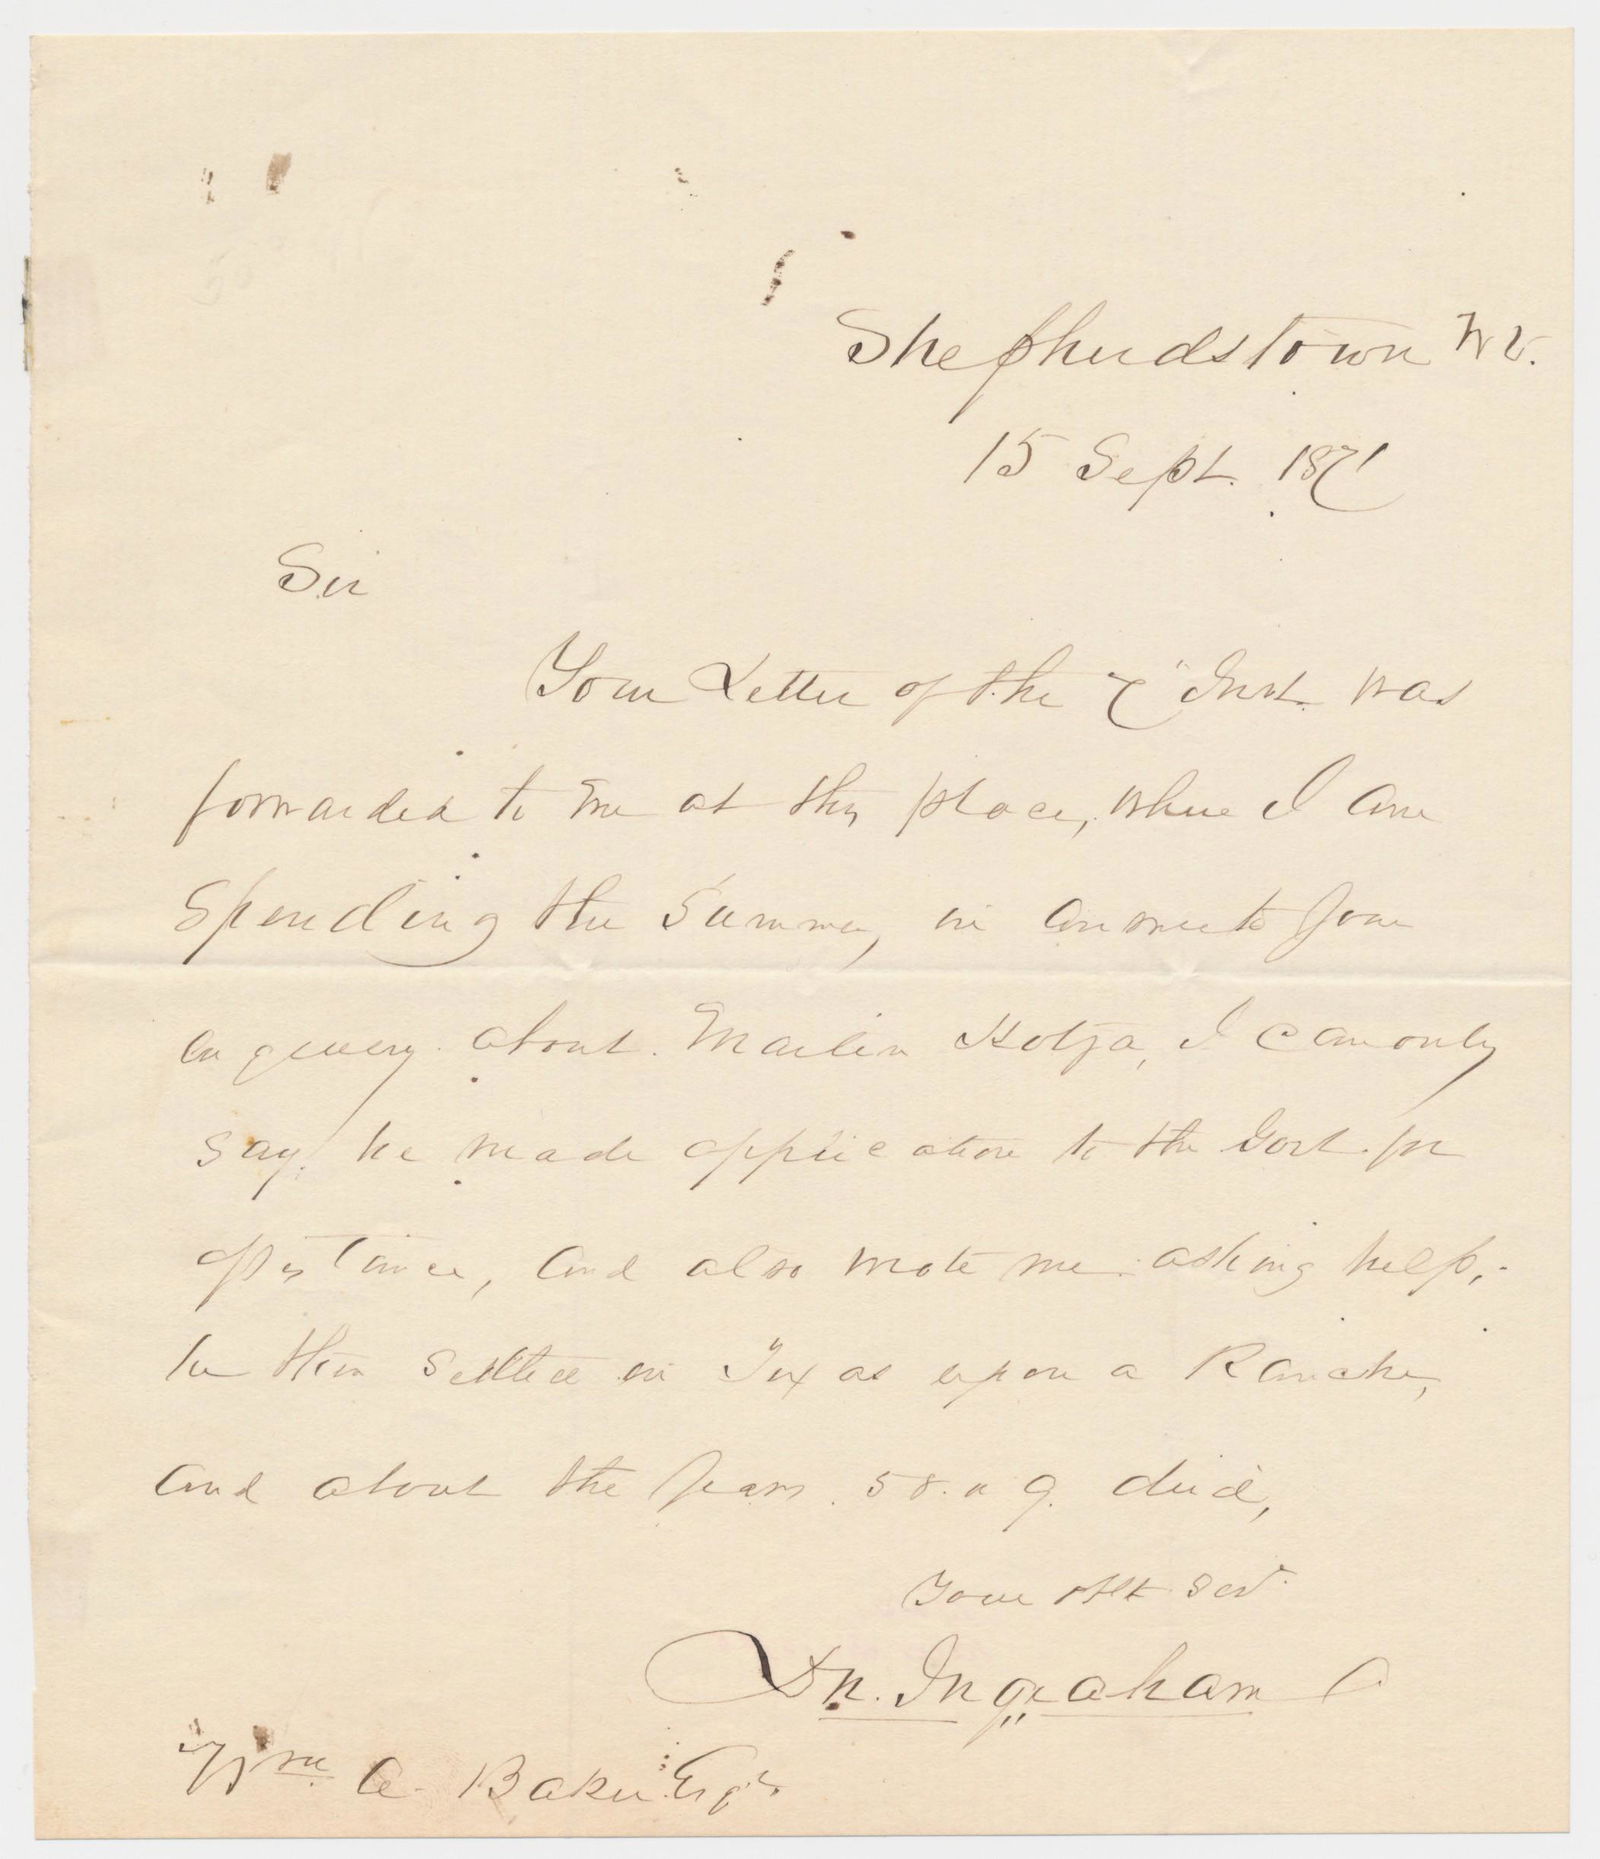 Shepherdstown W V.
15 Sept. 1871
Sir
Your Letter of the 7" Inst. was
forwarded to me at this place, where I am
Spending the Summer, in answer to your
enquiery about Martin Kotza, I can only
say, he made application to the Govt. for
assistance, and also wrote me asking help,
he then settled in Texas upon a Ranche,
and about the years 58. or 9. died,
Your Obt Servt.
D.N. Ingraham
Wm. A. Baker Esqr.